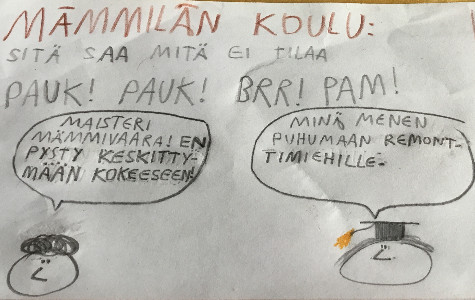 MÄMMILÄN KOULU:
SITÄ SAA MITÄ EI TILAA
PAUK! PAUK! BRR! PAM!
MAISTERI
MÄMMIVAARA! EN
PYSTY KESKITTY-
MÄÄN KOKEESEEN!
MINÄ MENEN
PUHUMAAN REMONT-
TIMIEHILLE.